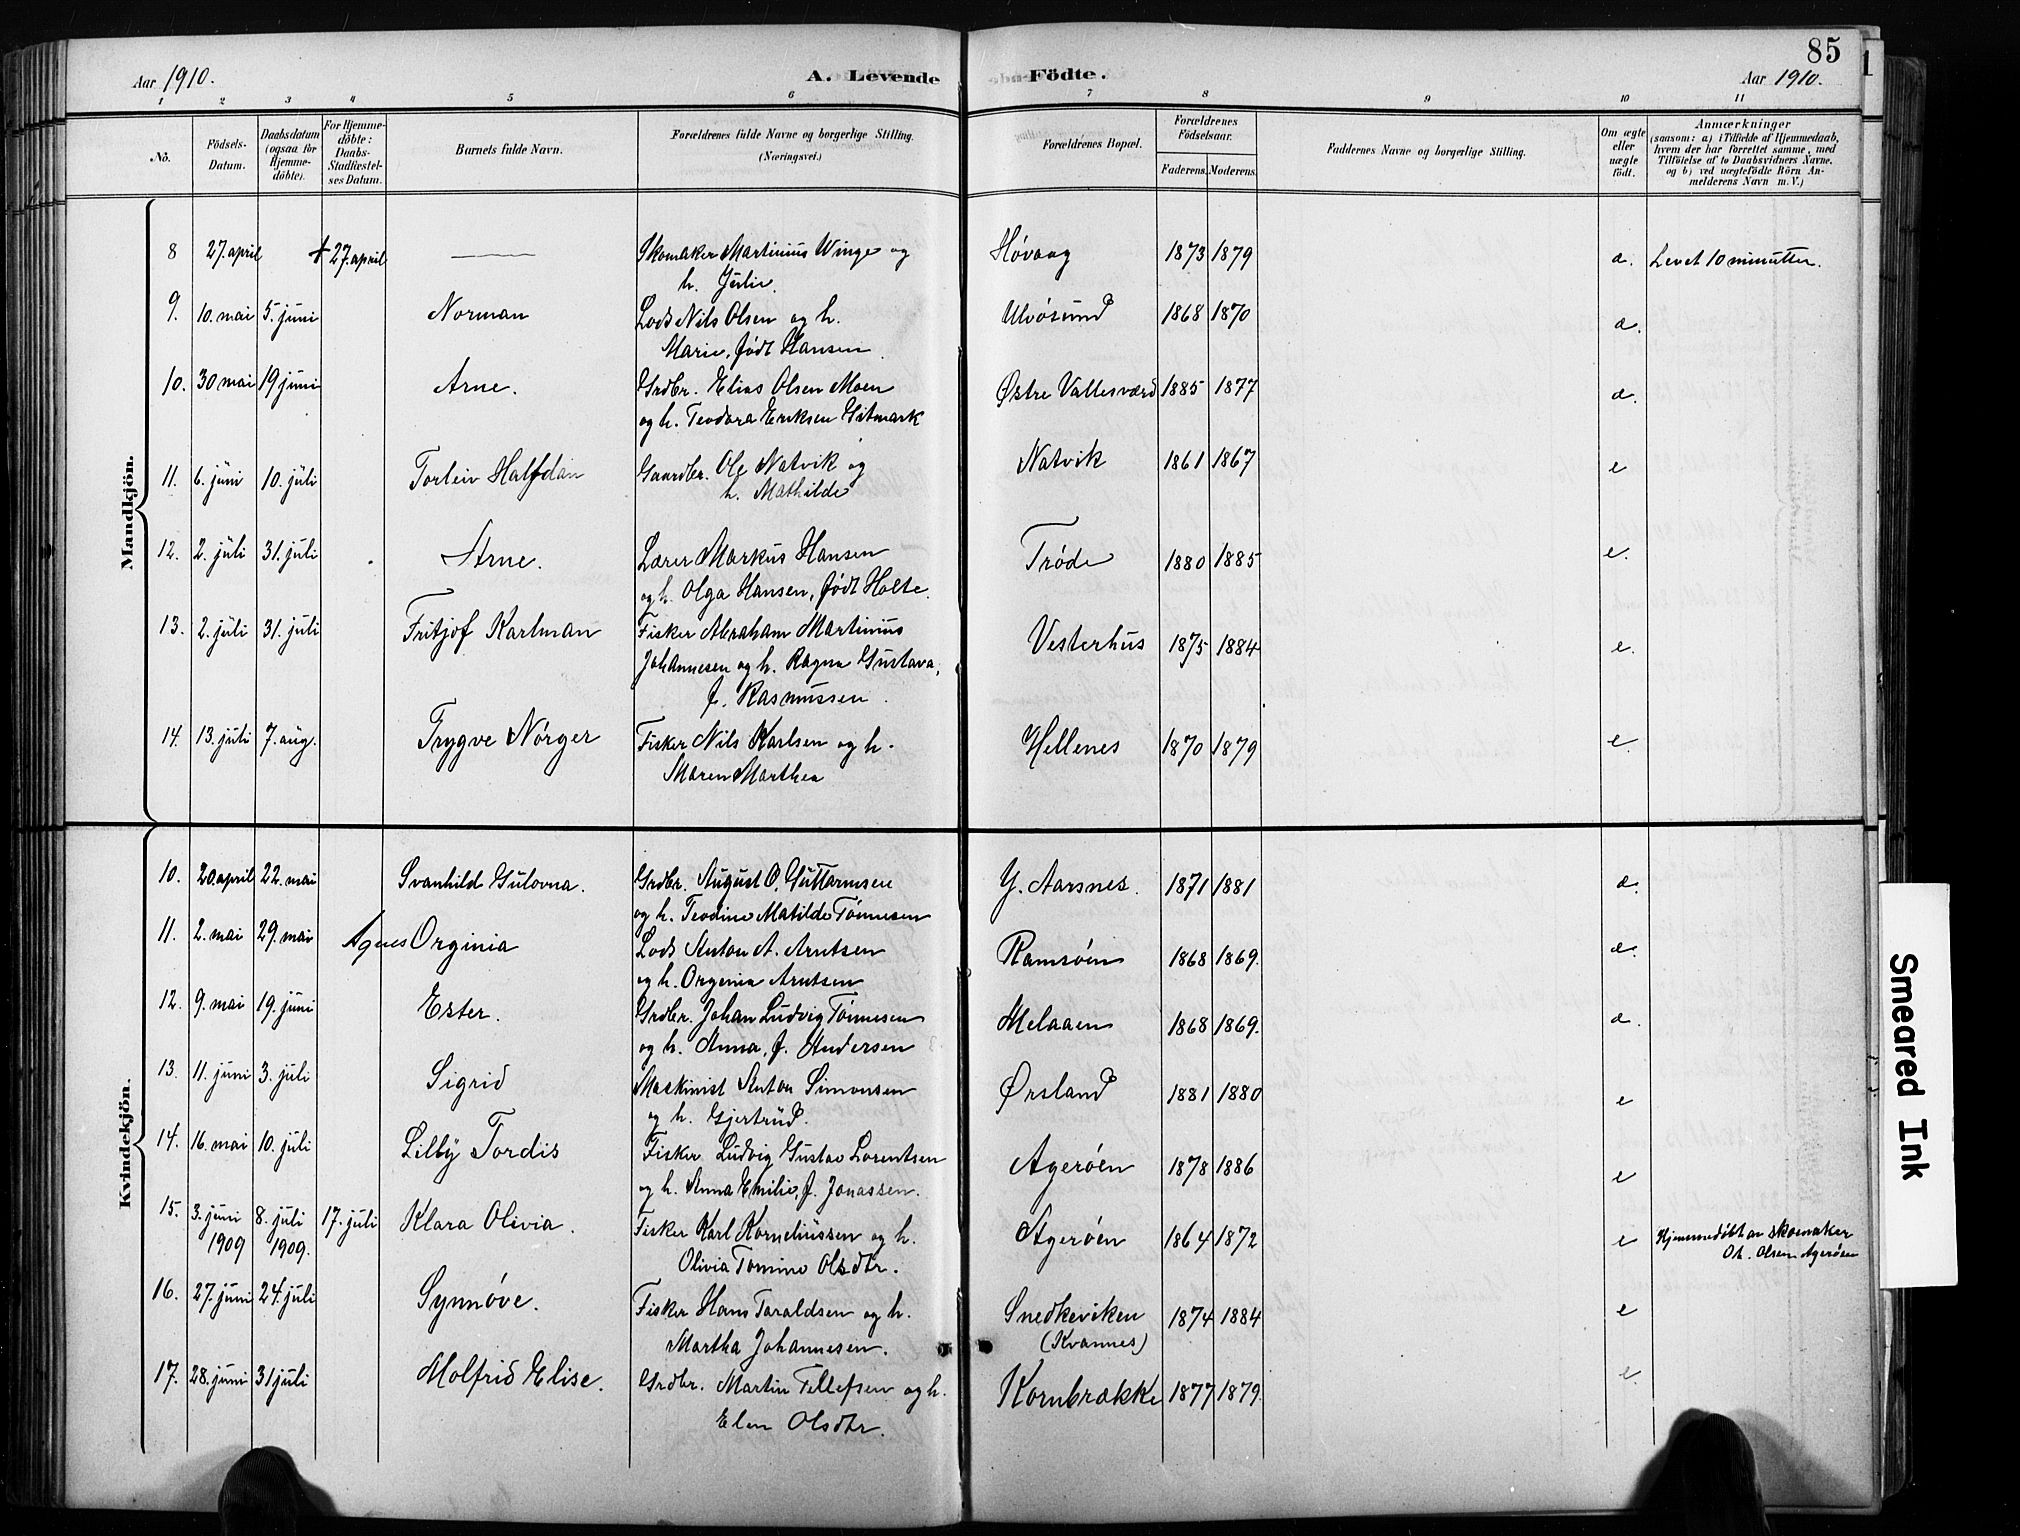 85
Aar 1910. A. Levende Födte. Aar 1910.
1 2 3 4 5 6 7 8 9 10 11
No. Födsels-Datum. Daabsdatum (ogsaa for Hjemme-döbte). For Hjemme-döbte: Daabs-Stadfæstel-ses Datum. Barnets fulde Navn. Forældrenes fulde Navne og borgerlige Stilling. (Næringsvei.) Forældrenes Bopæl. Forældrenes Födselsaar. Faderens. Moderens. Faddernes Navne og borgerlige Stilling. Om ægte eller uægte födt. Anmærkninger (saasom: a) i Tilfælde af Hjemmedaab, hvem der har forrettet samme, med Tilföielse af to Daabsvidners Navne, og b) ved uægtefödte Börn An-melderens Navn m. V.)
Mandkjön.
8 27. april + 27. april — Skomaker Martinius Winge og Høvaag 1873 1879 æ. Levet 10 minutter.
h. Julie.
9. 10. mai 5. juni Norman Lods Nils Olsen og h. Ulvøsund 1868 1870 æ.
Marie, født Hansen
10. 30 mai 19 juni Arne. Grdbr. Elias Olsen Moen Østre Vallesværd 1885 1877 æ.
og h. Teodora Eriksen Gitmark
11. 6. juni 10. juli Torleiv Halfdan Gaardbr. Ole Natvik og Natvik 1861 1867 e
h. Mathilde
12. 2. juli 31. juli Arne. Lærer Markus Hansen Trøde 1880 1885 e.
og h. Olga Hansen, født Holte.
13. 2. juli 31. juli Fritjof Karlman Fisker Abraham Martinius Vesterhus 1875 1884 e.
Johannesen og h. Ragna Gustava,
f. Rasmussen.
14. 13. juli 7. aug. Trygve Nørger Fisker Nils Karlsen og h. Hellenes 1870 1879 e.
Maren Marthea
Kvindekjön.
10. 20. april 22. mai Svanhild Gulovna. Grdbr. August O. Guttormsen Y. Aarsnes. 1871 1881 æ.
og h. Teodine Matilde Tønnesen
11. 2. mai 29. mai Agnes Orginia Lods Anton A. Arntsen Ramsøen 1868 1869. æ.
og h. Orgenia Arntsen
12. 9. mai 19. juni Ester. Grdbr. Johan Ludvig Tønnesen Melaaen 1868 1869. æ.
og h. Anna, f. Andersen
13. 11. juni 3. juli Sigrid Maskinist Anton Simonsen Ørsland 1881 1880 e
og h. Gjertrud.
14. 16. mai 10. juli Lilly Tordis Fisker Ludvig Gustav Lorentsen Agerøen 1878 1886 e
og h. Anna Emilie, f. Jonassen.
15. 3. juni 8. juli 17. juli Klara Olivia. Fisker Karl Korneliussen og h. Agerøen 1864 1872 e Hjemmedøbt av skomaker
1909 1909. Olivia Tomine Olsdtr. O. Olsen Agerøen
16. 27. juni 24. juli Synnøve. Fisker Hans Taraldsen og h. Snedkeviken 1874 1884 e
Martha Johannesen. (Kvannes)
17. 28. juni 31 juli Molfrid Elise. Grdbr. Martin Tellefsen og h. Kornbrække 1877 1879. e.
Elen Olsdtr.
Smeared Ink